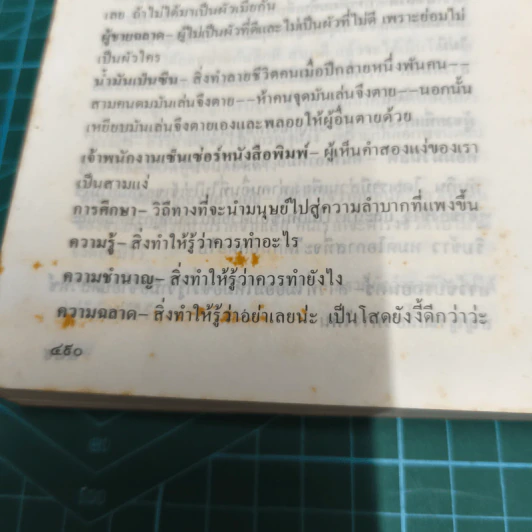 เลย ถ้าไม่ได้มาเป็นผัวเมียกัน
ผู้ชายฉลาด– ผู้ไม่เป็นผัวที่ดีและไม่เป็นผัวที่ไม่ดี เพราะย่อมไม่
เป็นผัวใคร
น้ำมันเบ็นซิน– สิ่งทำลายชีวิตคนเมื่อปีกลายหนึ่งพันคน––
สามคนดมมันเล่นจึงตาย––ห้าคนจุดมันเล่นจึงตาย––นอกนั้น
เหยียบมันเล่นจึงตายเองและพลอยให้ผู้อื่นตายด้วย
เจ้าพนักงานเซ็นเซ่อร์หนังสือพิมพ์– ผู้เห็นคำสองแง่ของเรา
เป็นสามแง่
การศึกษา– วิถีทางที่จะนำมนุษย์ไปสู่ความลำบากที่แพงขึ้น
ความรู้– สิ่งทำให้รู้ว่าควรทำอะไร
ความชำนาญ– สิ่งทำให้รู้ว่าควรทำยังไง
ความฉลาด– สิ่งทำให้รู้ว่าอย่าเลยน่ะ เป็นโสดยังงี้ดีกว่าว่ะ
๔๕๐